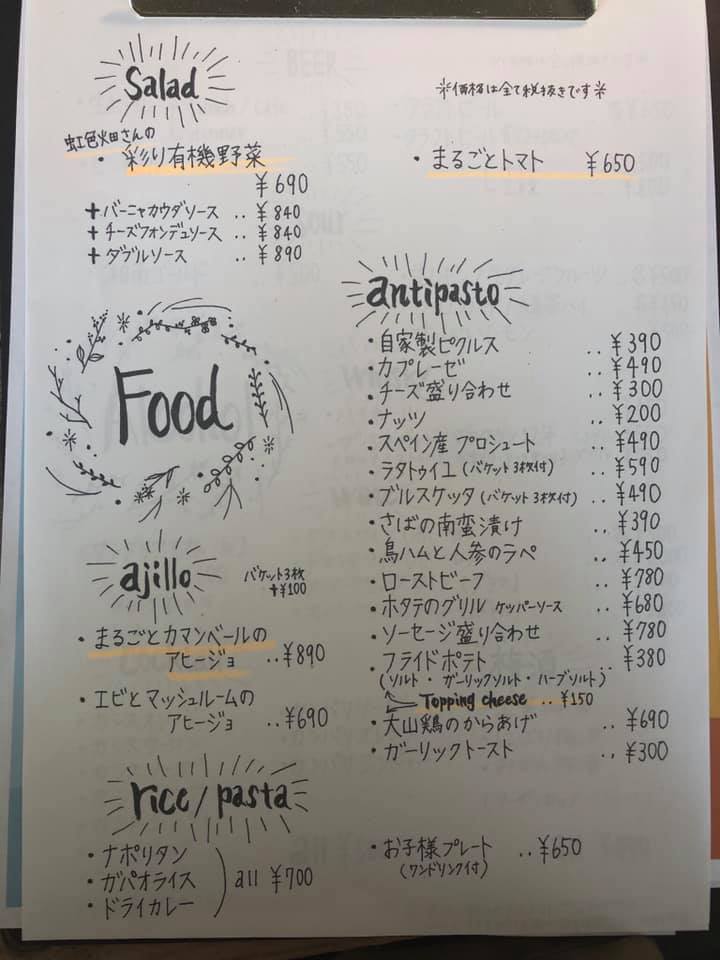 Salad
※価格は全て税抜きです※
虹色畑さんの
・彩り有機野菜
¥690
+バーニャカウダソース ‥¥840
+チーズフォンデュソース ‥¥840
+ダブルソース ‥¥890
・まるごとトマト ¥650
Food
antipasto
・自家製ピクルス ‥¥390
・カプレーゼ ‥¥490
・チーズ盛り合わせ ‥¥300
・ナッツ ‥¥200
・スペイン産 プロシュート ‥¥490
・ラタトゥイユ(バケット3枚付) ‥¥590
・ブルスケッタ(バケット3枚付) ‥¥490
・さばの南蛮漬け ‥¥390
・鳥ハムと人参のラペ ‥¥450
・ローストビーフ ‥¥780
・ホタテのグリル ケッパーソース ‥¥680
・ソーセージ盛り合わせ ‥¥780
・フライドポテト ‥¥380
(ソルト・ガーリックソルト・ハーブソルト)
Topping cheese ‥¥150
・大山鶏のからあげ ‥¥690
・ガーリックトースト ‥¥300
ajillo
バケット3枚
+¥100
・まるごとカマンベールの
アヒージョ ‥¥890
・エビとマッシュルームの
アヒージョ ‥¥690
rice/pasta
・ナポリタン
・ガパオライス
・ドライカレー
all ¥700
・お子様プレート ‥¥650
(ワンドリンク付)